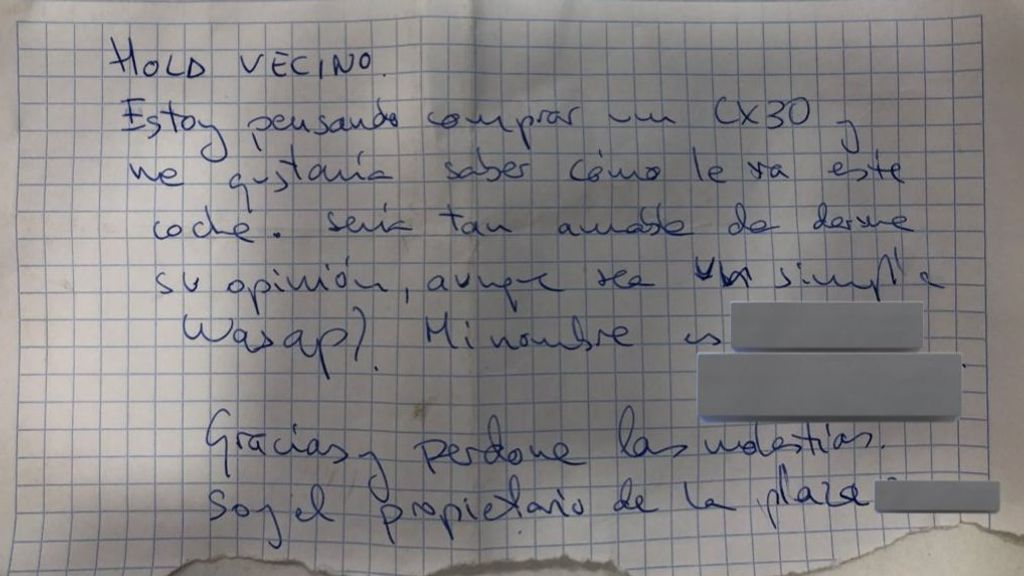 HOLA VECINO.
Estoy pensando comprar un CX30 y
me gustaría saber cómo le va este
coche. sería tan amable de darme
su opinión, aunque sea un simple
Wasap?. Mi nombre es
Gracias y perdone las molestias.
Soy el propietario de la plaza